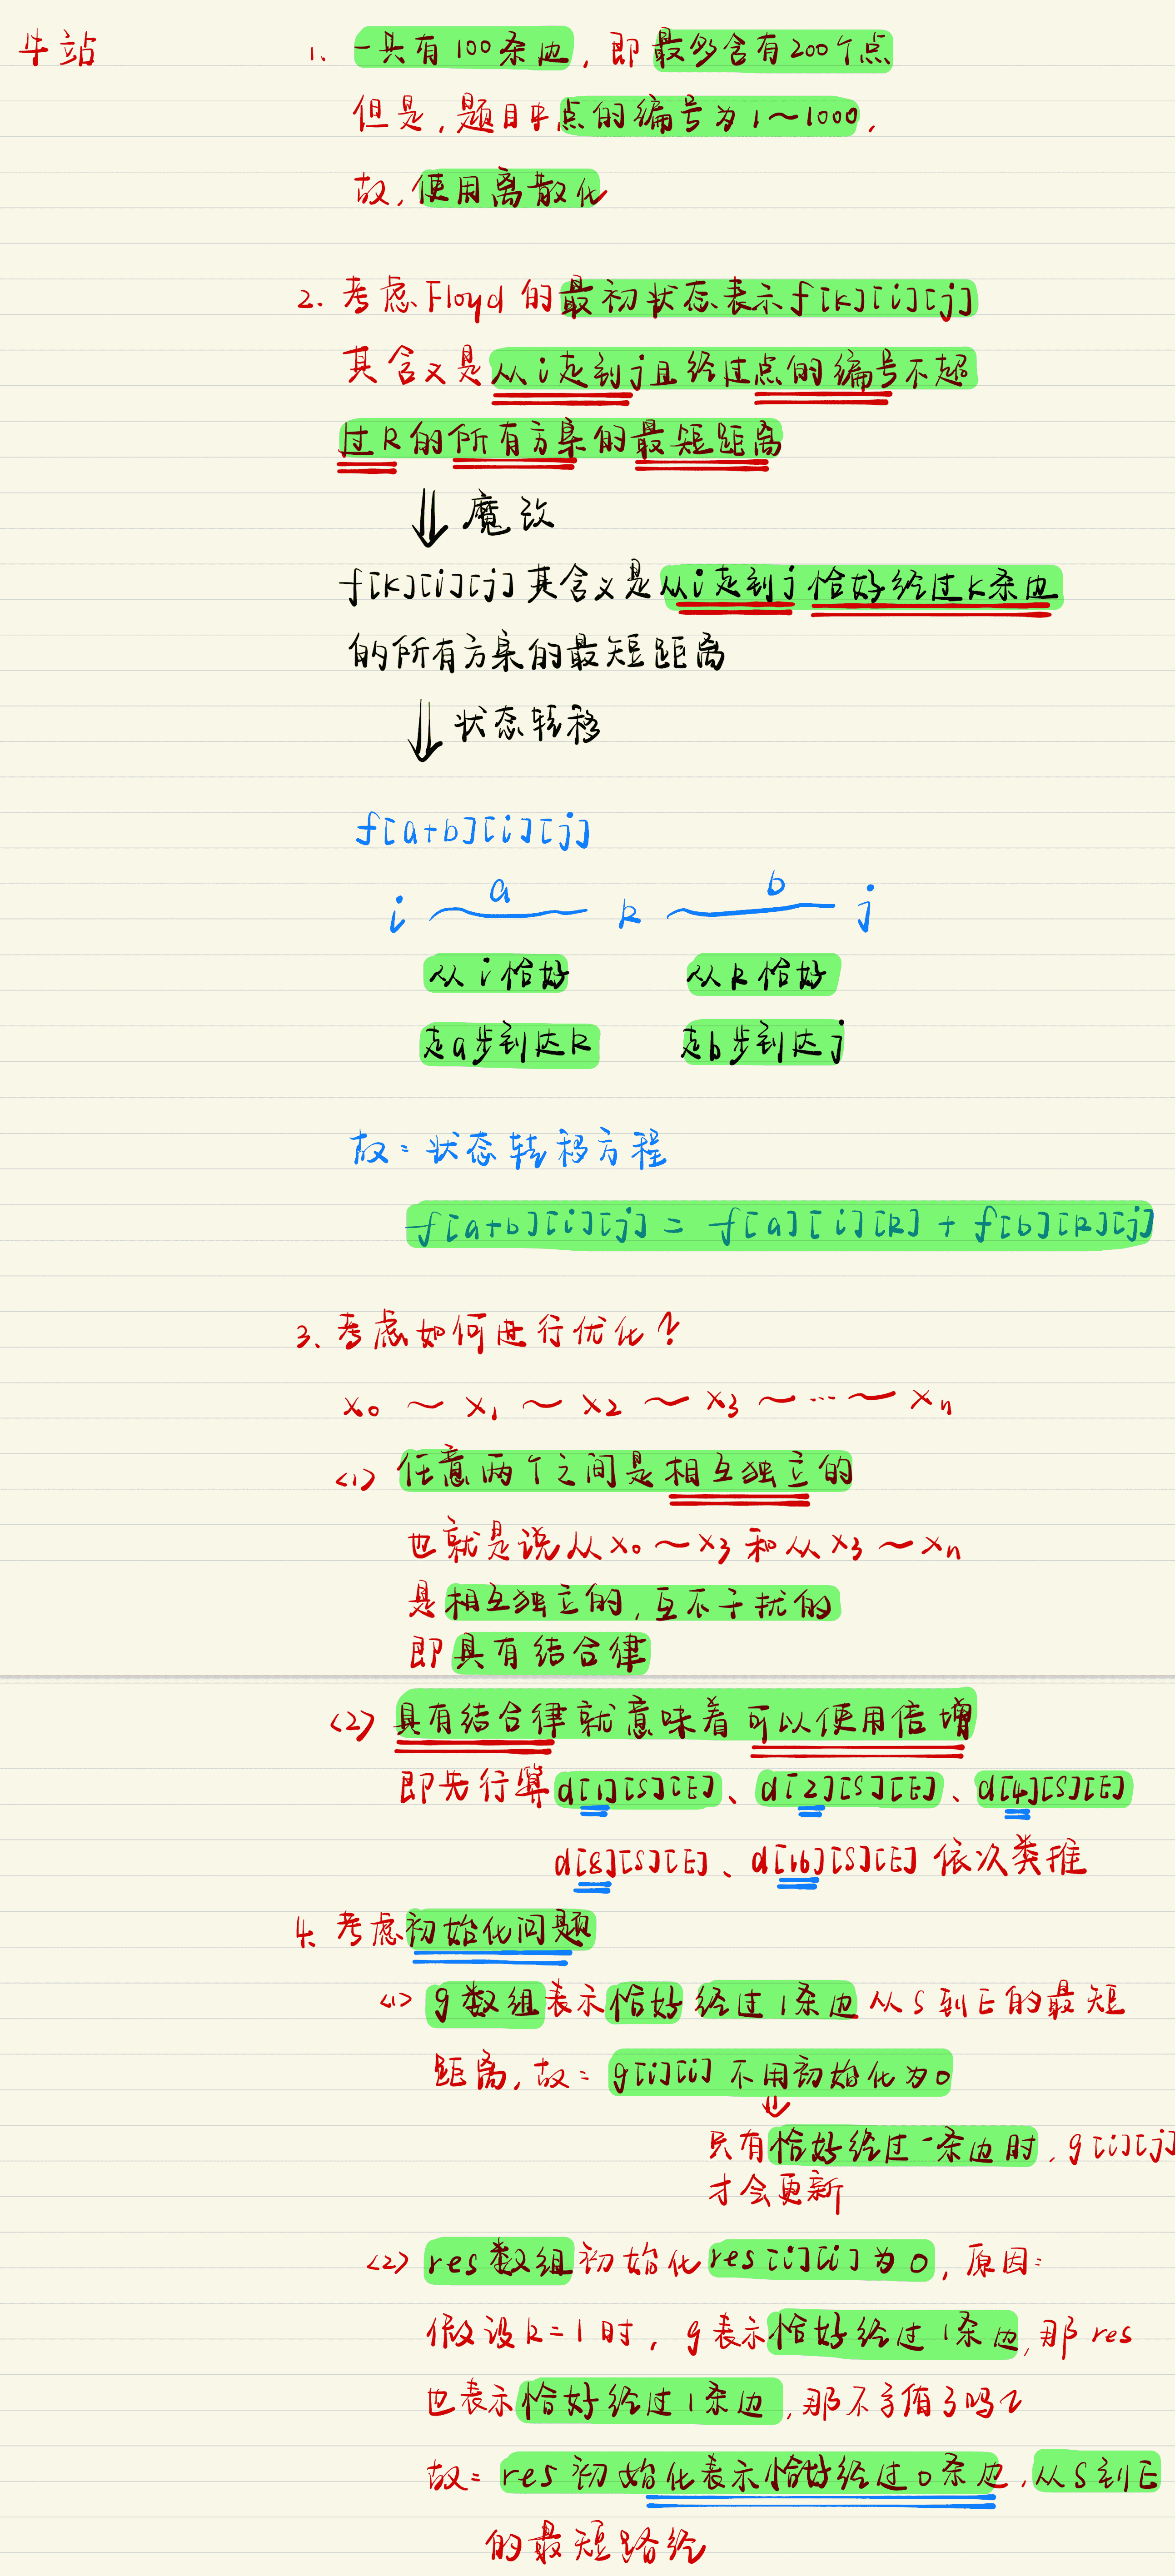 牛站
1、一共有100条边，即最多含有200个点
但是，题目中点的编号为1～1000，
故，使用离散化
2. 考虑Floyd的最初状态表示f[k][i][j]
其含义是从i走到j且经过点的编号不超
过k的所有方案的最短距离
⇓ 魔改
f[k][i][j]其含义是从i走到j恰好经过k条边
的所有方案的最短距离
⇓ 状态转移
f[a+b][i][j]
a b
i k j
从i恰好 从k恰好
走a步到达k 走b步到达j
故：状态转移方程
f[a+b][i][j] = f[a][i][k] + f[b][k][j]
3、考虑如何进行优化？
x0 ～ x1 ～ x2 ～ x3 ～ … ～ xn
<1> 任意两个之间是相互独立的
也就是说从x0～x3和从x3～xn
是相互独立的，互不干扰的
即具有结合律
<2> 具有结合律就意味着可以使用倍增
即先行算d[1][S][E]、d[2][S][E]、d[4][S][E]
d[8][S][E]、d[16][S][E] 依次类推
4、考虑初始化问题
<1> g数组表示恰好经过1条边从S到E的最短
距离，故：g[i][i]不用初始化为0
⇓
只有恰好经过一条边时，g[i][j]
才会更新
<2> res数组初始化res[i][i]为0，原因：
假设k=1时，g表示恰好经过1条边，那res
也表示恰好经过1条边，那不亏有了吗？
故：res初始化表示恰好经过0条边，从S到E
的最短路径